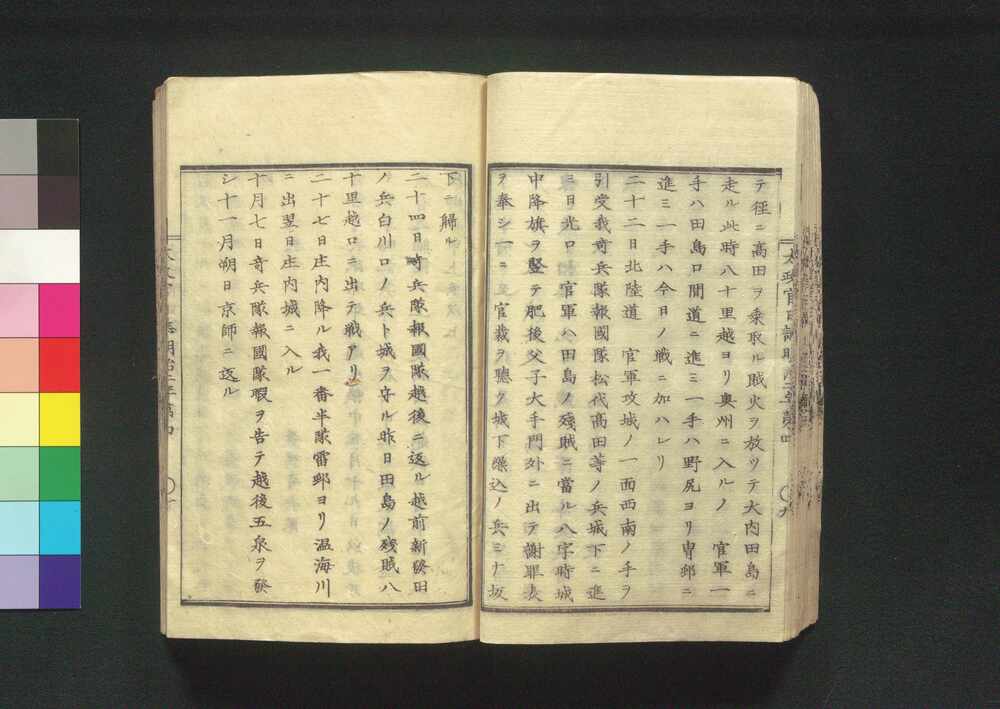 テ徑ニ高田ヲ乘取ル賊火ヲ放ツテ大内田島ニ
走ル此時八十里越ヨリ奥州ニ入ルノ　官軍一
手ハ田島口間道ニ進ミ一手ハ野尻ヨリ曽郷ニ
進ミ一手ハ今日ノ戰ニ加ハレリ
二十二日北陸道　官軍攻城ノ一面西南ノ手ヲ
引受我竒兵隊報國隊松代高田等ノ兵城下ニ進
ミ日光口　官軍ハ田島ノ殘賊ニ當ル八字時城
中降旗ヲ竪テ肥後父子大手門外ニ出テ謝罪表
ヲ奉シ一ニ　官裁ヲ聽ク城下繰込ノ兵ミナ坂
下ニ歸ル
二十四日竒兵隊報國隊越後ニ返ル越前新發田
ノ兵白川口ノ兵ト城ヲ守ル昨日田島ノ殘賊八
十里越口ニ出テ戰アリ
二十七日庄内降ル我一番半隊雷郷ヨリ温海川
ニ出翌日庄内城ニ入ル
十月七日竒兵隊報國隊暇ヲ告テ越後五泉ヲ發
シ十一月朔日京師ニ返ル
太政官日誌明治二年第四
〇九
明治二年第四
〇十